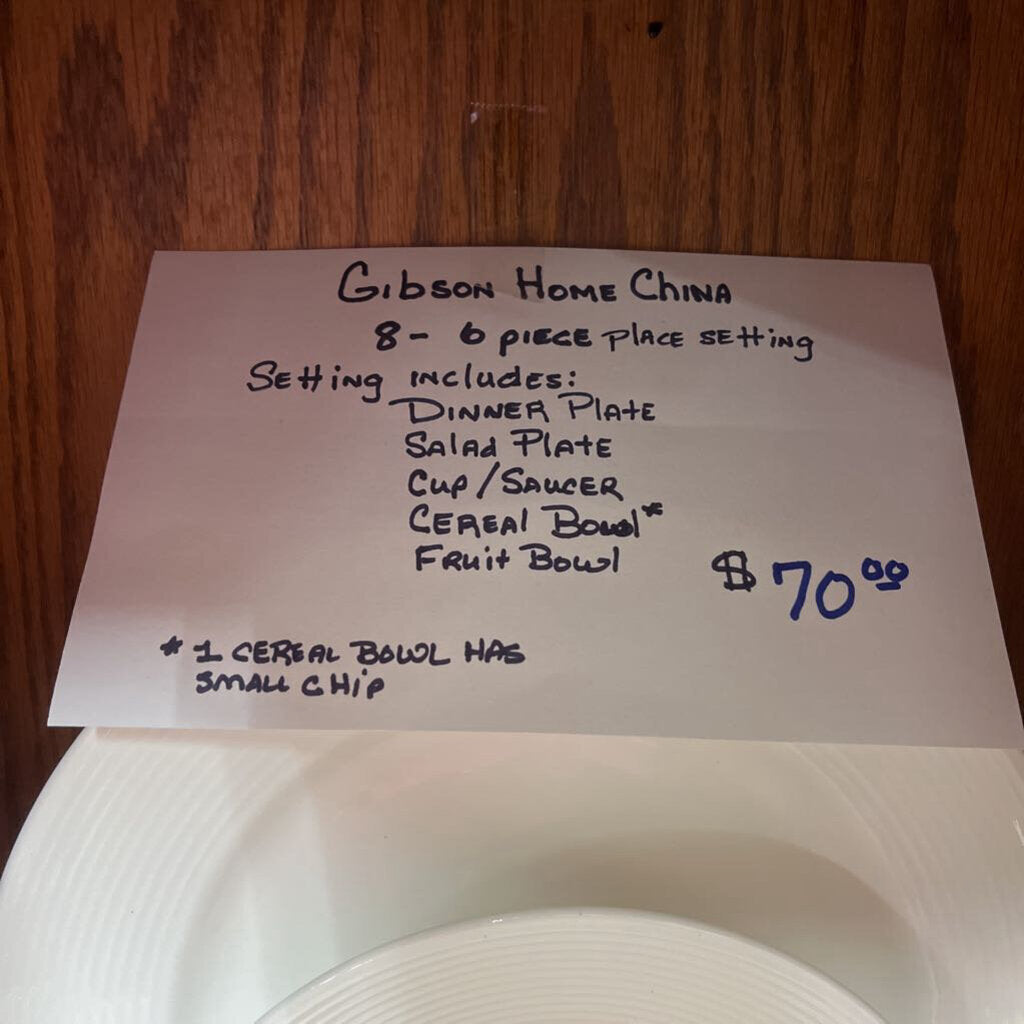 Gibson Home China
8 - 6 piece place setting
Setting includes:
Dinner Plate
Salad Plate
Cup/Saucer
Cereal Bowl*
Fruit Bowl
$70.00
* 1 CEREAL BOWL HAS
SMALL CHIP